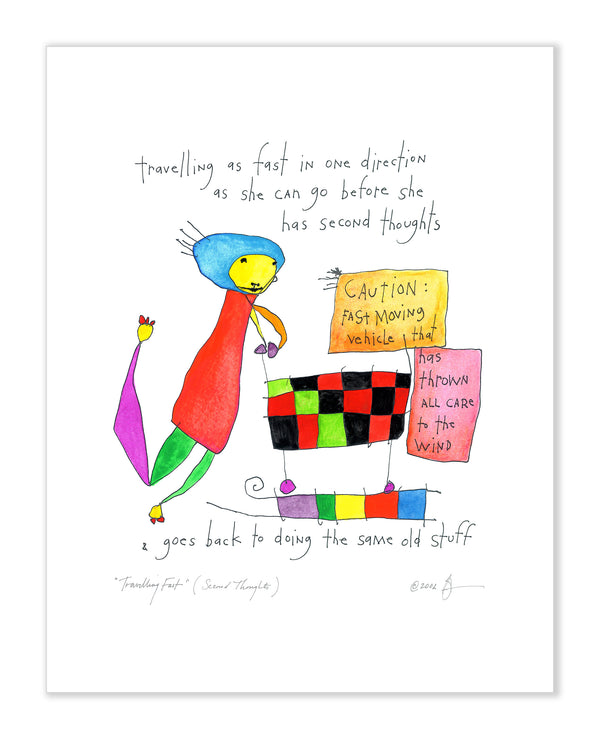 travelling as fast in one direction
as she can go before she
has second thoughts
CAUTION:
FAST MOVING
vehicle that
has
thrown
ALL CARE
to the
WIND
& goes back to doing the same old stuff
"Travelling Fast" (Second Thoughts)
©2002